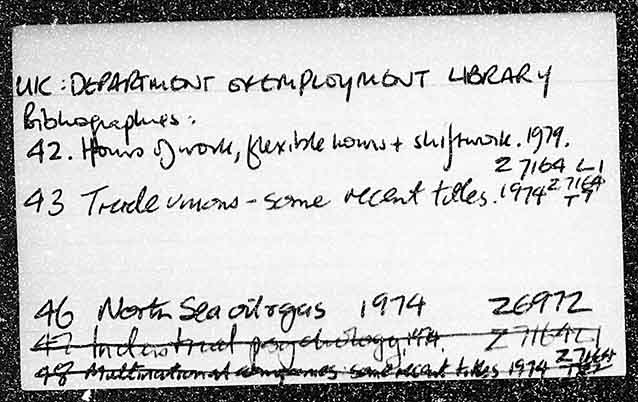 UK: DEPARTMENT OF EMPLOYMENT LIBRARY
Bibliographies:
42. Hours of work, flexible hours + shiftwork. 1979.
Z 7164 L1
43 Trade unions - some recent titles. 1974 Z 7164
T7
46 North Sea oil + gas 1974 Z6972
47 Industrial psychology, 1974, Z 7164 L1
48 Multinational companies some recent titles 1974 Z 7164